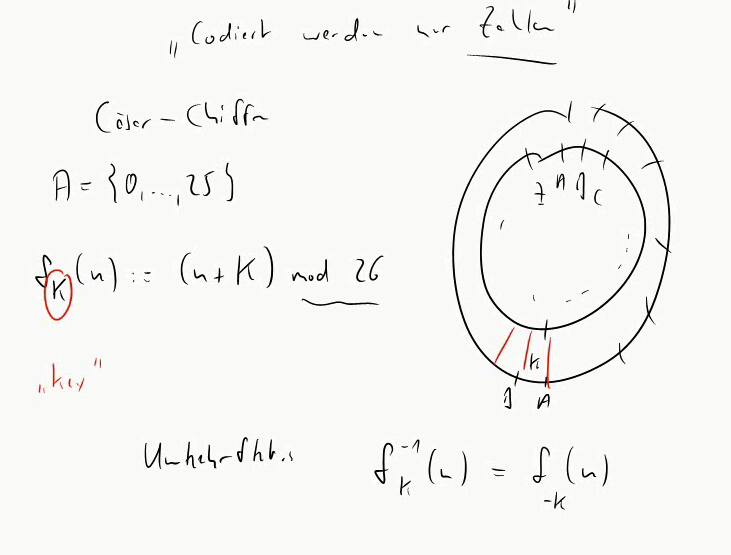 „Codiert werden nur Zahlen"
Cäsar-Chiffre
A = {0,...,25}
f_K(n) := (n+K) mod 26
„key"
Z A B C
K
B A
Umkehrfkt.
f_K^{-1}(n) = f_{-K}(n)